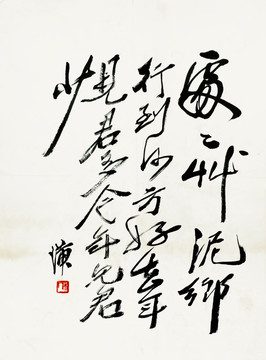 處〻艸泥鄉
行到何方好去年
見君多今年見君
少